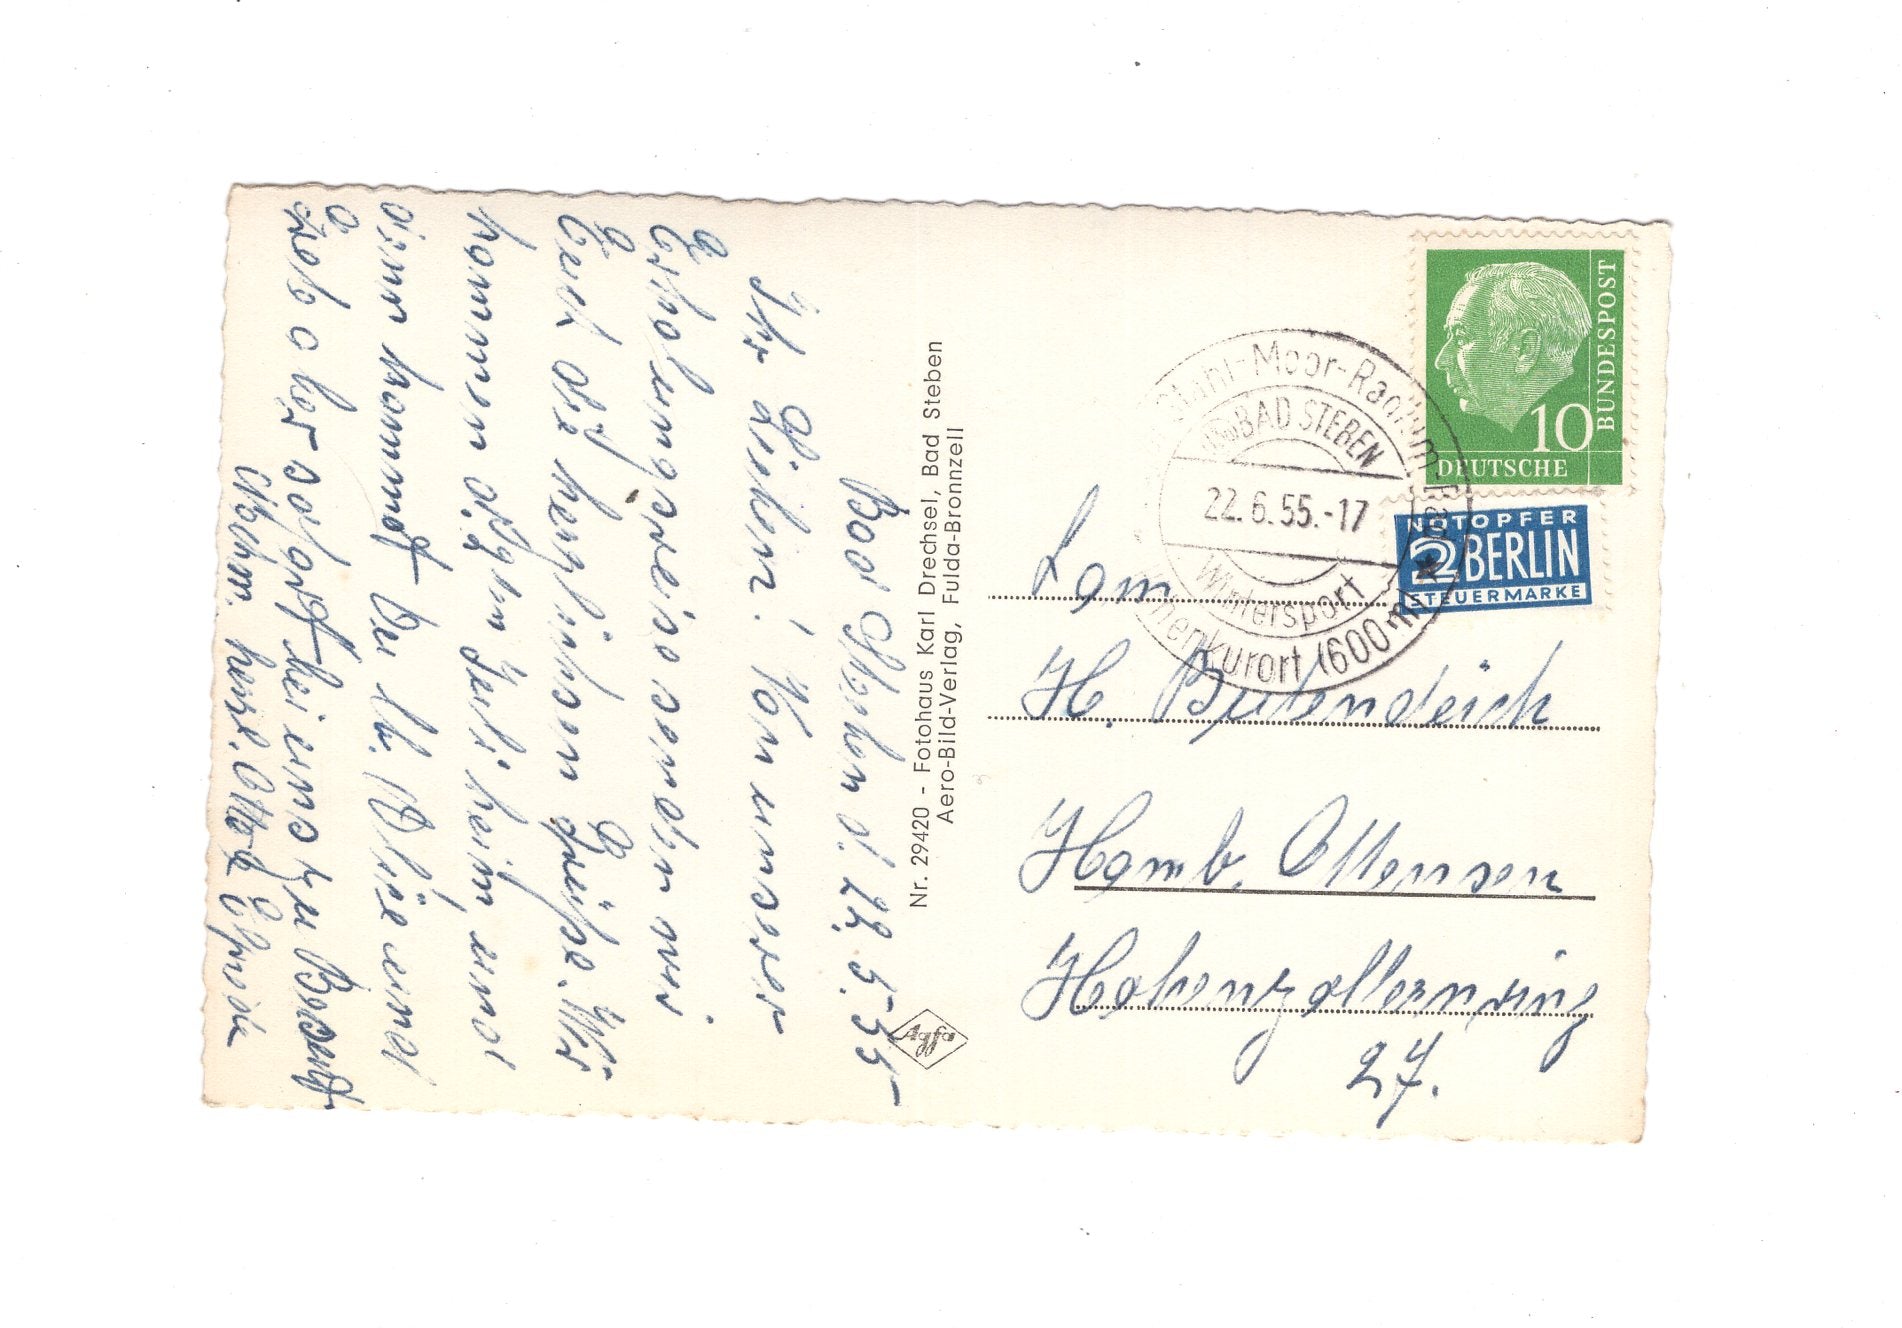 Bad Steben d. 22. 5. 55
Ihr Lieben! Von unserer
Erholungsreise senden wir
Euch die herzlichsten Grüße. Wir
kommen d. Jhre heim, und
dann kommst Du lb. Alise und
Bob aber sofort bei uns zu Besuch
Nochm. herzl. Otto &
Nr. 29420 - Fotohaus Karl Drechsel, Bad Steben
Aero-Bild-Verlag, Fulda-Bronnzell
Agfa
10
DEUTSCHE
BUNDESPOST
NOTOPFER
2 BERLIN
STEUERMARKE
Stahl-Moor-Radium-
BAD STEBEN
22.6.55.-17
Wintersport
Höhenkurort (600 m)
Fam
H. Butendeich
Hamb. Ottensen
Hohenzollernring
27.